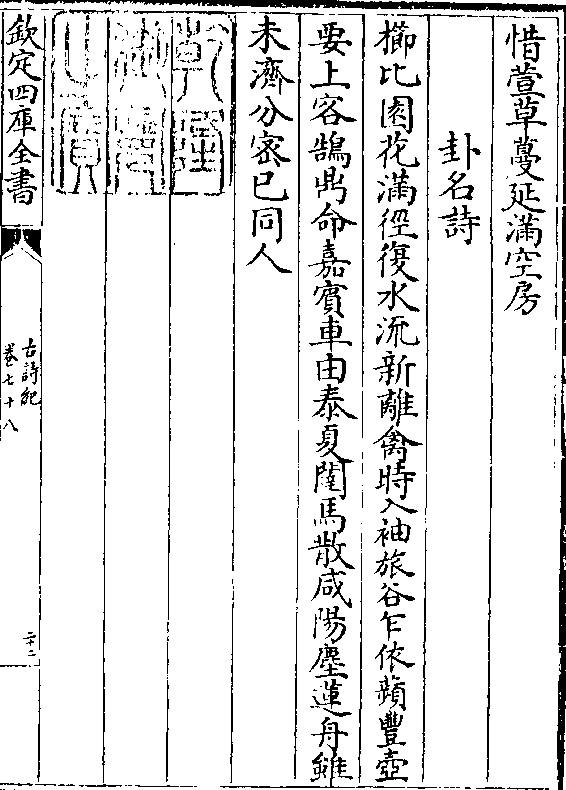 惜萱草蔓延滿空房
卦名詩
櫛比園花滿徑復水流新離禽時入袖旅谷乍依蘋豐壺
要上客鵠鼎命嘉賓車由泰夏闥馬散咸陽塵蓮舟雖
未濟分密已同人
乾隆
御覽
之寶
欽定四庫全書
古詩紀
卷七十八
二十二